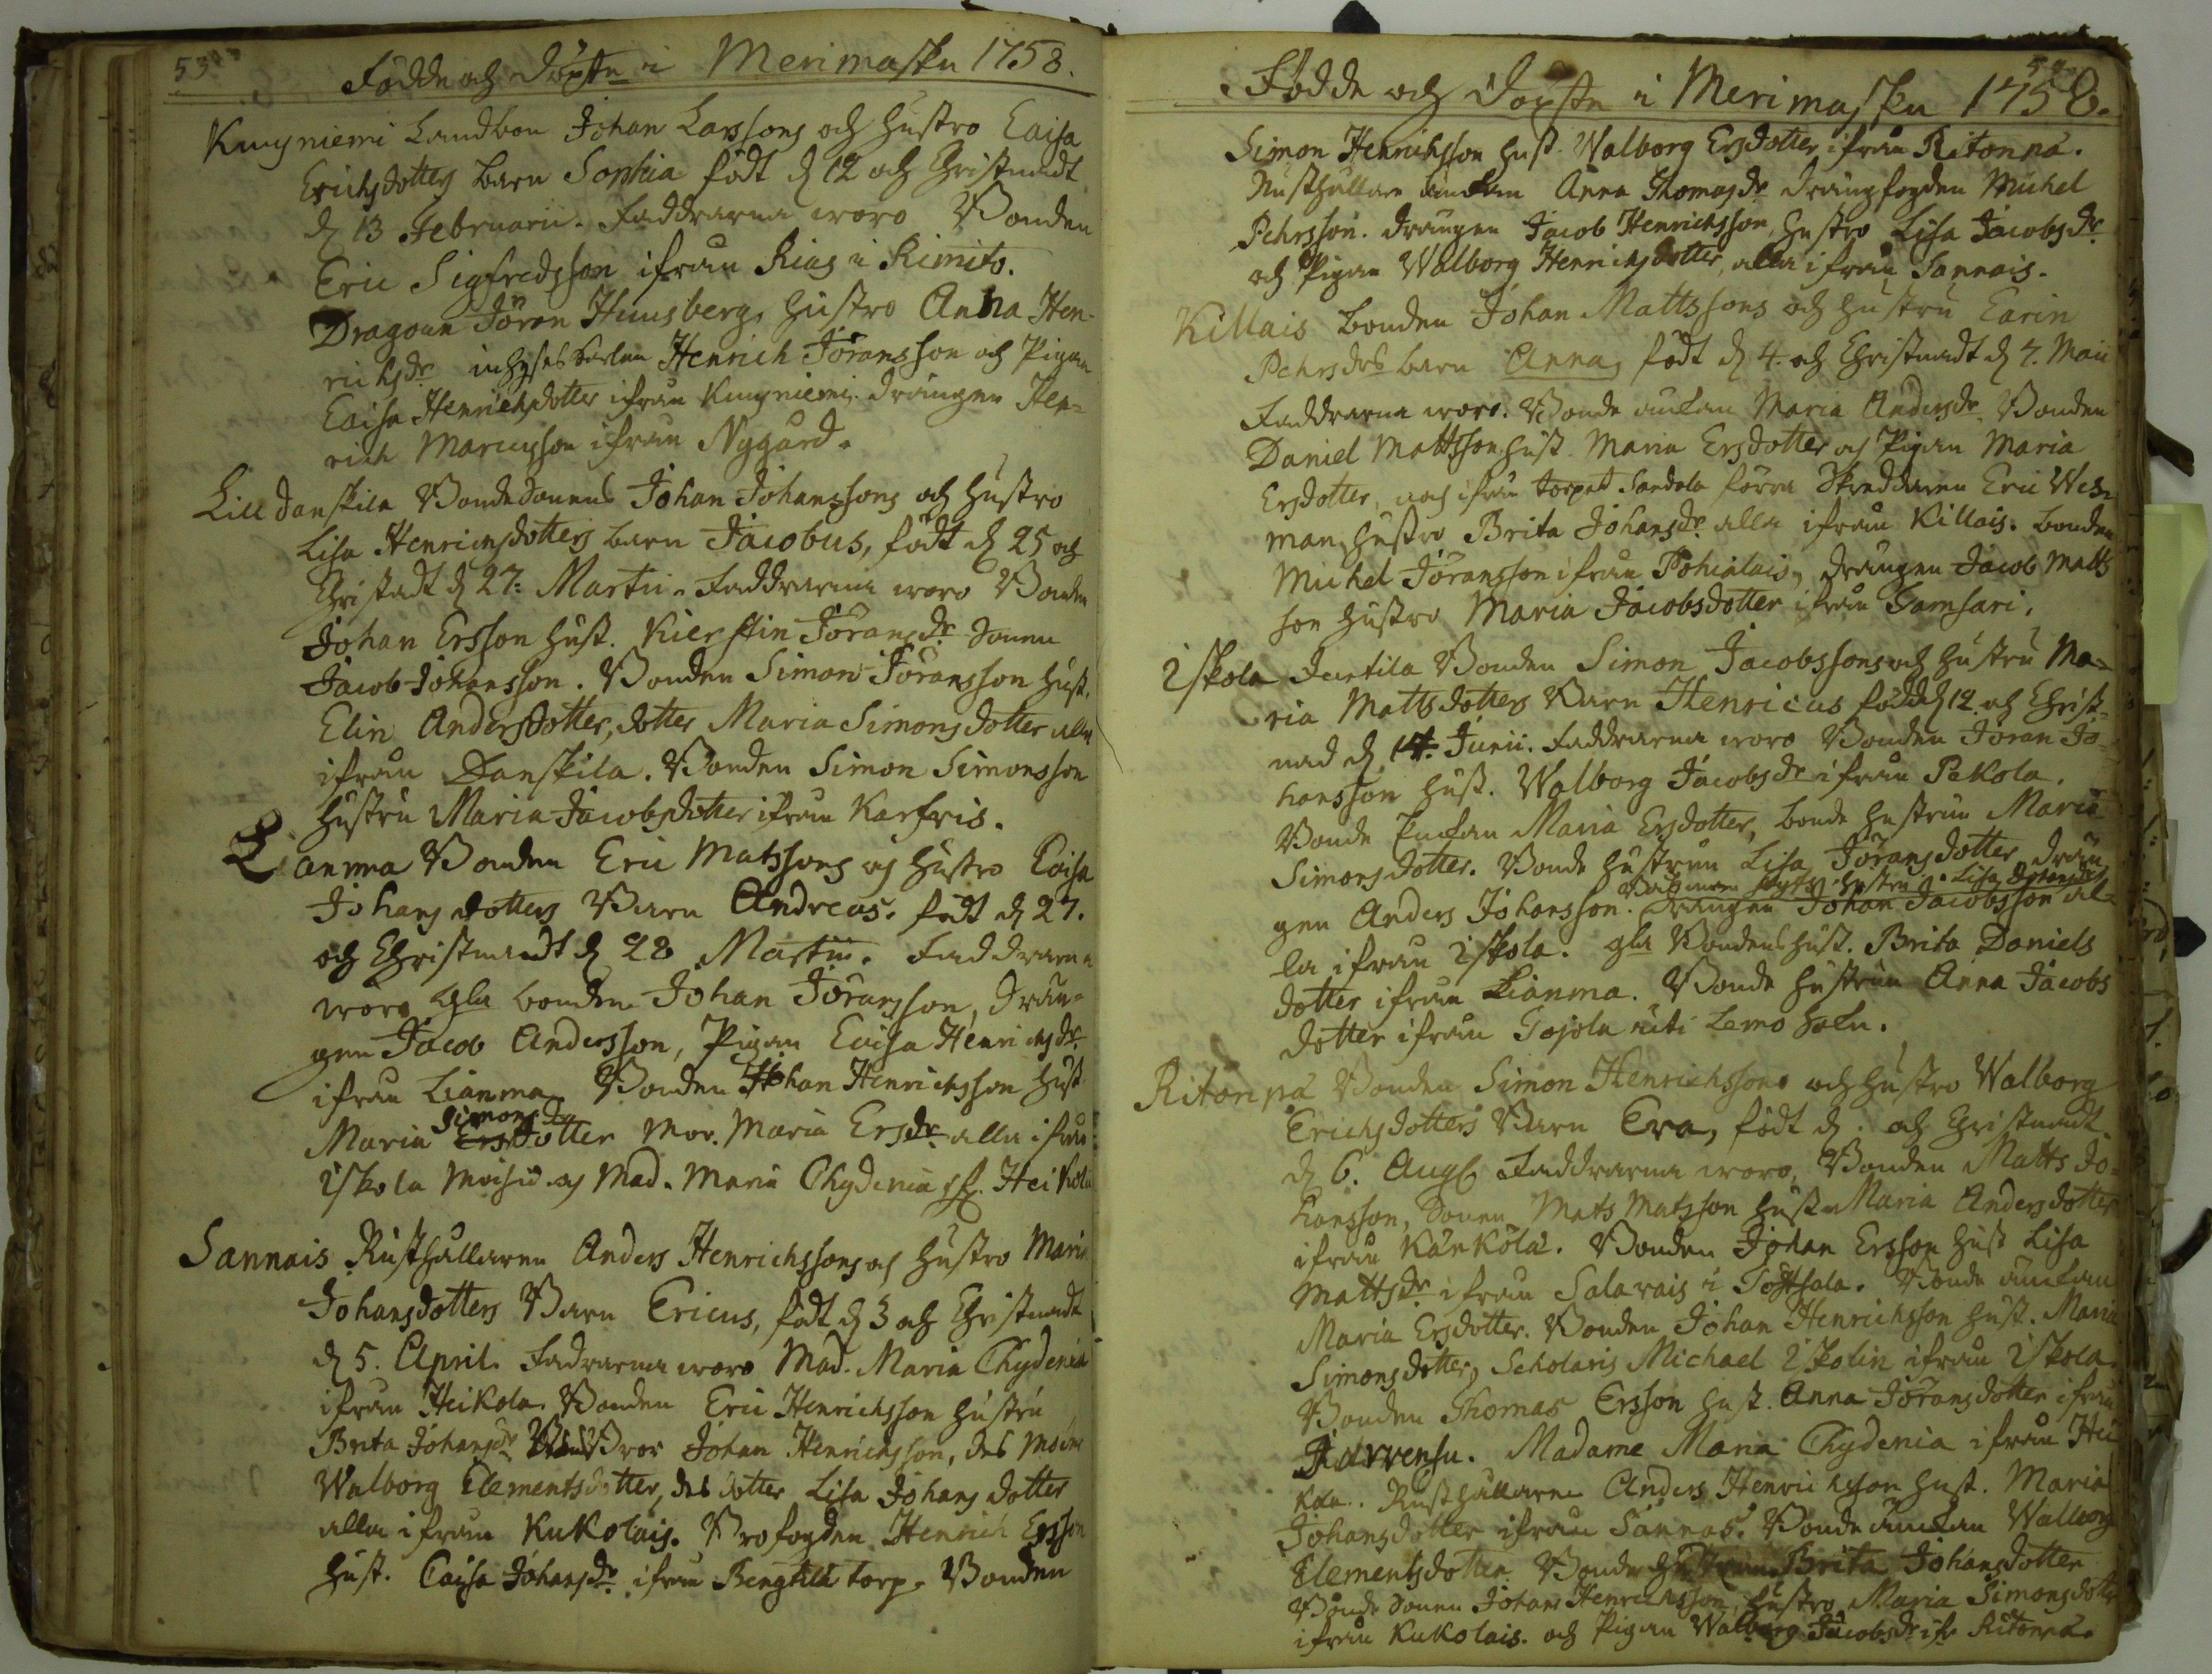 53
Födde och Döpte i Merimasku 1758.
Kuuseniemi Landbon Johan Larssons och hustro Caisa
Erichsdotters barn Sophia födt d 12 och Christnadt
d 13 Februarii. Faddrarna woro Bonden
Eric Sigfredsson ifrån Rias i Rimito.
Dragoun Jöran Huusberg, hustro Anna Hen-
richsdr inhyses karlen Henrich Jöransson och Pigan
Caisa Henrichsdotter ifrån Kuuseniemi. Drängen Hen=
rich Marcusson ifrån Nygård.
Lill Danskila Bonde Sonens Johan Johanssons och hustro
Lisa Henrichsdotters barn Jacobus, födt d 25 och
Christadt d 27: Martii. Faddrarna woro Bonden
Johan Ersson hust. Kierstin Jöransdr Sonen
Jacob Johansson. Bonden Simon Jöransson hust.
Elin Andersdotter, dotter Maria Simonsdotter alla
ifrån Danskila. Bonden Simon Simonsson
hustru Maria Jacobsdotter ifrån Karfris.
Lianma Bonden Eric Matssons och hustro Caisa
Johansdotters Barn Andreas. födt d 27.
och Christnadt d 28 Martii. Faddrarna
woro gla bonden Johan Jöransson, Drän-
gen Jacob Andersson, Pigan Caisa Henrichsdr
ifrån Lianma. Bonden Johan Henrichsson hust
Maria Simonsdotter Mor. Maria Ersdr alla ifrån
Iskola och Mad. Maria Chydenia Heikola
Sannais Rusthållaren Anders Henrichssons och hustro Maria
Johansdotters Barn Ericus, födt d 3 och Christnadt
d 5. April. Fadrarna woro Mad. Maria Chydenia
ifrån Heikola. Bonden Eric Henrichsson hustru
Brita Johansdr Bror Johan Henrichsson, des Moder
Walborg Clementsdotter, des dotter Lisa Johansdotter
alla ifrån Kukolais. Brofogden Henrich Ersson
hust. Caisa Johansdr. ifrån Bengtila torp. Bonden
Födde och Döpte i Merimasku 1758.
Simon Henrichsson hust. Walborg Ersdotter ifrån Ritonpä.
Rusthållare änckan Anna Thomasdr Drängfogden Michel
Pehrsson. Drängen Jacob Henrichsson, hustro Lisa Jacobsdr
och Pigan Walborg Henrichsdotter, alla ifrån Sannais.
Killais Bonden Johan Mattssons och hustru Carin
Pehrsdrs barn Anna, födt d 4. och Christnadt d 7. Maii
Faddrarna woro. Bonde änckan Maria Andersdr Bonden
Daniel Mattsson hust. Maria Ersdotter och Pigan Maria
Ersdotter, och ifrån torpet Sandola förra Skreddaren Eric Weh=
man, hustro Brita Johansdr alla ifrån Killais. bonden
Michel Jöransson ifrån Pohialais, Drängen Jacob Matts
son hustro Maria Jacobsdotter ifrån Samsari.
Iskola Jurtila Bonden Simon Jacobssons och hustru Ma=
ria Mattsdotters Barn Henricus född d 12. och Christ=
nad d. 14. Junii. Faddrarna woro Bonden Jöran Jo=
hansson hust. Walborg Jacobsdr ifrån Pekola.
Bonde Enckan Maria Ersdotter, bonde hustrun Maria
Simonsdotter. Bonde hustrun Lisa Jöransdotter drän
hustru Lisa
gen Anders Johansson. Drängen Johan Jacobsson al-
la ifrån Iskola. gla Bondens hust. Brita Daniels
dotter ifrån Lianma. Bonde hustrun Anna Jacobs
dotter ifrån Tojola uti Lemo Sokn.
Ritonpä Bonden Simon Henrichssons och hustro Walborg
Erichsdotters Barn Eva, födt d. och Christnadt
d 6. Aug. Faddrarna woro, Bonden Matts Jo=
hansson, Sonen Mats Matsson hust. Maria Andersdotter
ifrån Känkölä. Bonden Johan Ersson hust Lisa
Mattsdr ifrån Salavais i Töfsala. Bonde änckan
Maria Ersdotter. Bonden Johan Henrichsson hust. Maria
Simonsdotter, Scholaris Michael Iskolin ifrån Iskola.
Bonden Thomas Ersson hust. Anna Jöransdotter ifrån
Järvvensu. Madame Maria Chydenia ifrån Hei
kola. Rusthållaren Anders Henrichsson hust. Maria
Johansdotter ifrån Sannas. Bonde änckan Walborg
Clementsdotter. Bonde hustrun Brita Johansdotter
Bonde Sonen Johan Henrichsson, hustro Maria Simonsdotter
ifrån Kukolais. och Pigan Walborg Jacobsdr ifr Ritonpä.